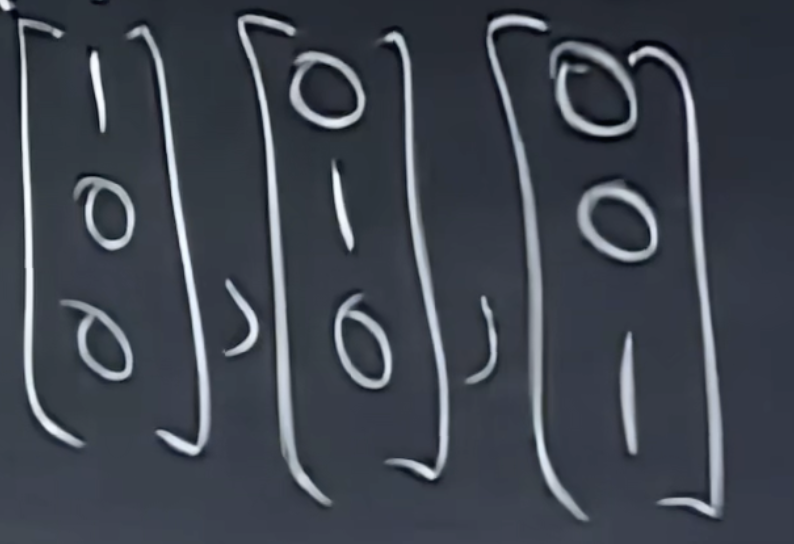 [1  [0  [0
0   1   0
0], 0], 1]